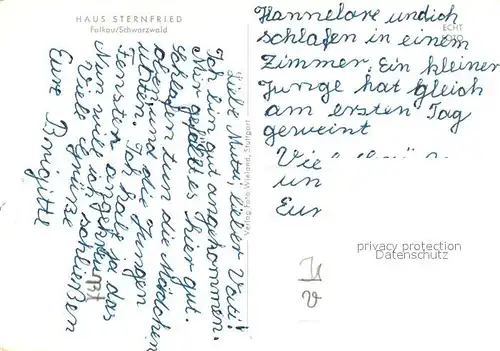 HAUS STERNFRIED
Falkau/Schwarzwald
Liebe Mutti, lieber Vati!
Ich bin gut angekommen.
Mir gefällt es hier gut.
Schlafen tun die Mädchen
oben und die Jungen
unten. Ich habe ja das
Fenster
Nun will ich schließen
Viele Grüße
Eure Brigitte
Verlag Foto Wieland, Stuttgart
ECHT
FOTO
Hannelore und ich
schlafen in einem
Zimmer. Ein kleiner
Junge hat gleich
am ersten Tag
geweint
Vie
un
Eur
privacy protection
Datenschutz